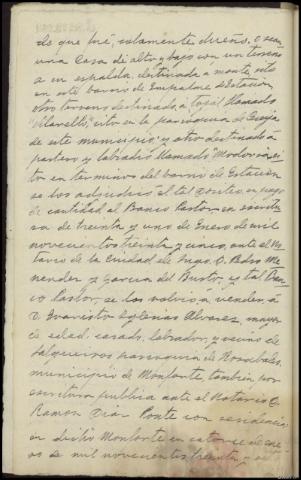 de que fué, solamente, dueño, o sean
una Casa de alto y bajo con un terreno
a su espalda, destinado a monte, sito
en este barrio de Empalme o Estación,
otro terreno destinado a tojal llamado
sito en la parroquia de
de este municipio, y otro destinado á
pastero y labradío llamado si-
to en término del barrio de Estación
se los adjudicó al tal en pago
de cantidad al Banco Pastor, en escritu-
ra de treinta y uno de Enero de mil
novecientos treinta y cinco, ante el No-
tario de la Ciudad de Lugo D. Pedro Me-
nendez y Garcia del Busto, y tal Ban-
co Pastor, se los volvió a vender, á
D. Evaristo Iglesias Alvarez, mayor
de edad, casado, labrador, y vecino de
Salgueiros parroquia de
municipio de Monforte, tambien por
escritura publica ante el Notario D.
Ramon Diaz Ponte con residencia
en dicho Monforte en catorce de ene-
ro de mil novecientos treinta y